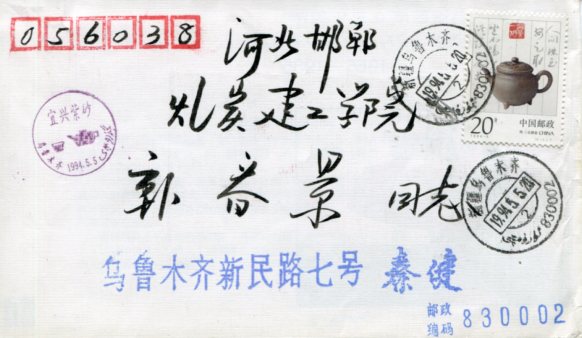 056038
河北邯郸
煤炭建工学院
郭春景 同志
宜兴紫砂
乌鲁木齐
1994.5.5
新疆乌鲁木齐
1994.5.5.20
2
830002
20分
中国邮政
CHINA
新疆乌鲁木齐
1994.5.5.20
2
830002
乌鲁木齐新民路七号 秦健
邮政
编码 830002